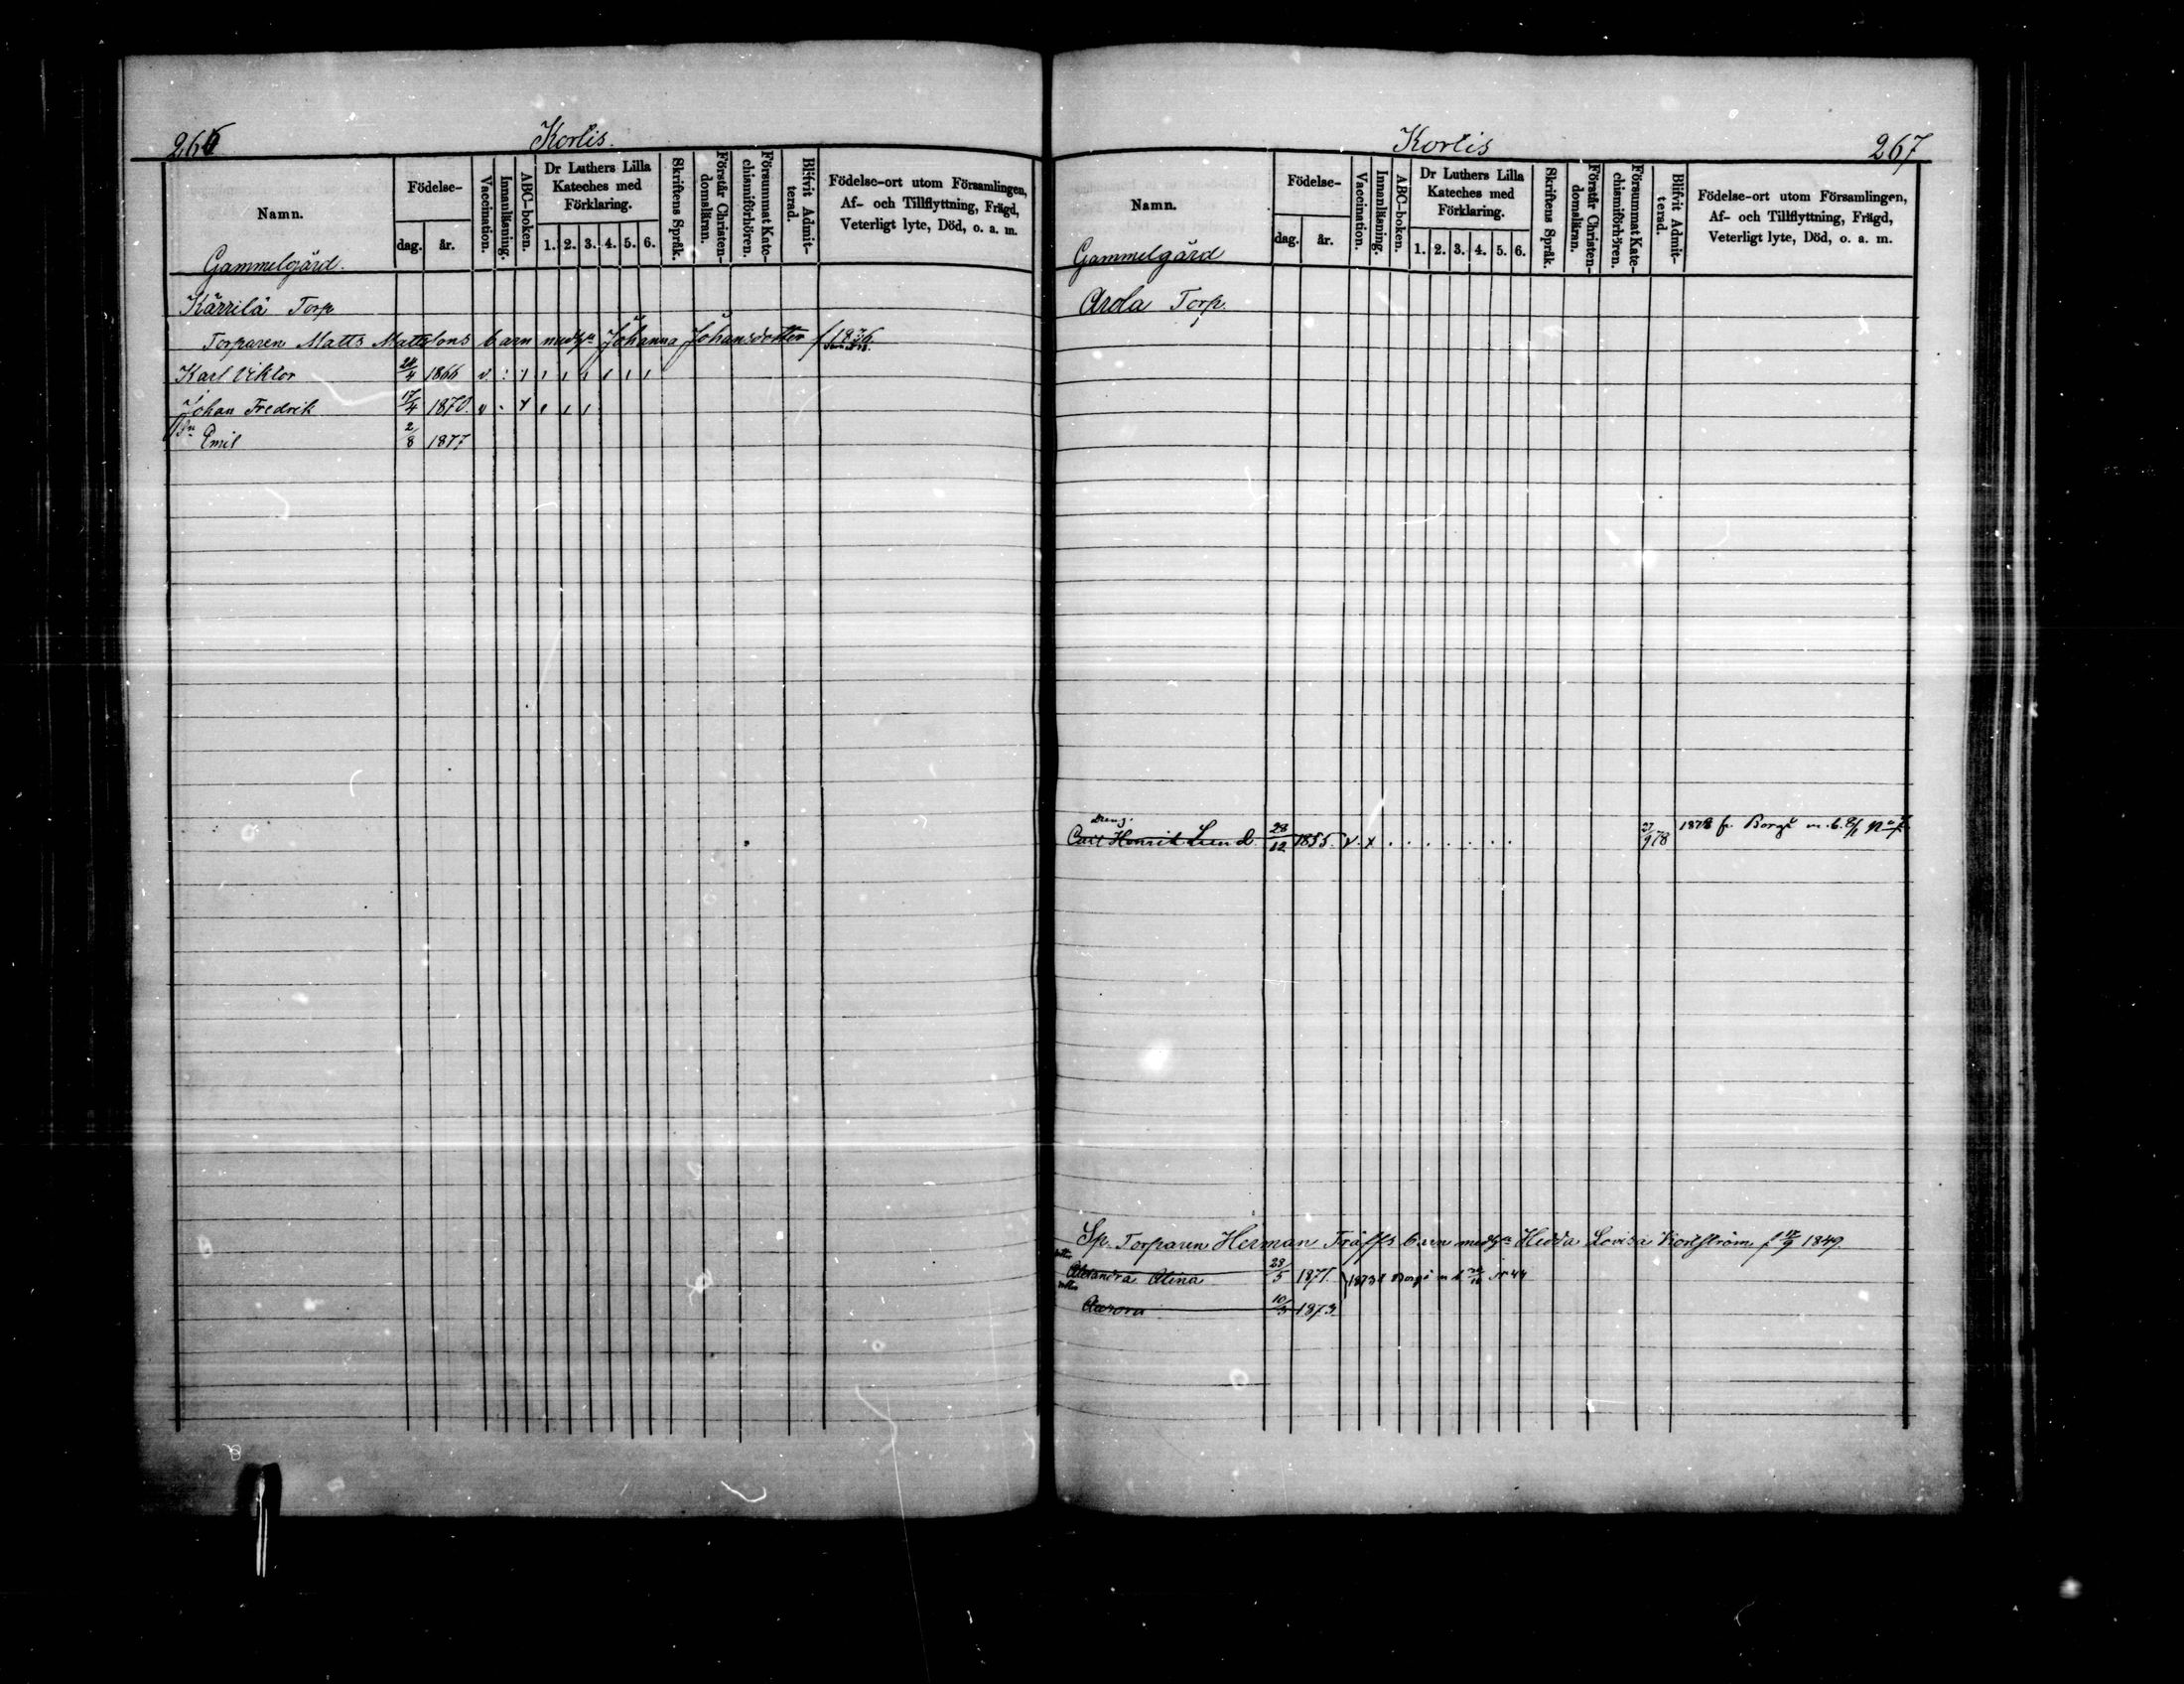 266
Kortis.
Namn.
Födelse-
dag.
år.
Vaccination.
Innanläsning.
ABC-boken.
Dr Luthers Lilla
Kateches med
Förklaring.
1. 2. 3. 4. 5. 6.
Skriftens Språk.
Förstår Christen-
domsläran.
Försummat Kate-
chismiförhören.
Blifvit Admit-
terad.
Födelse-ort utom Församlingen,
Af- och Tillflyttning, Frägd,
Veterligt lyte, Död, o. a. m.
Gammelgård.
Kärrilä Torp
Torparen Matts Mattssons barn med Johanna Johansdotter f 1836
Karl Viktor 24/4 1866 v
Johan Fredrik 17/4 1870. v
Sn Emil 2/8 1877
Kortis
267
Namn.
Födelse-
dag.
år.
Vaccination.
Innanläsning.
ABC-boken.
Dr Luthers Lilla
Kateches med
Förklaring.
1. 2. 3. 4. 5. 6.
Skriftens Språk.
Förstår Christen-
domsläran.
Försummat Kate-
chismiförhören.
Blifvit Admit-
terad.
Födelse-ort utom Församlingen,
Af- och Tillflyttning, Frägd,
Veterligt lyte, Död, o. a. m.
Gammelgård
Arola Torp.
Dreng.
Carl Henrik Lund 28/12 1855. v. x 27/9 78 1878 fr. Borgå m. b.
Sp. Torparen Herman Träffs barn med Hedda Lovisa f 1849.
Alexandra Alina 28/5 1871. 1873 t Borgå m b No 44
Aurora 10/5 1873